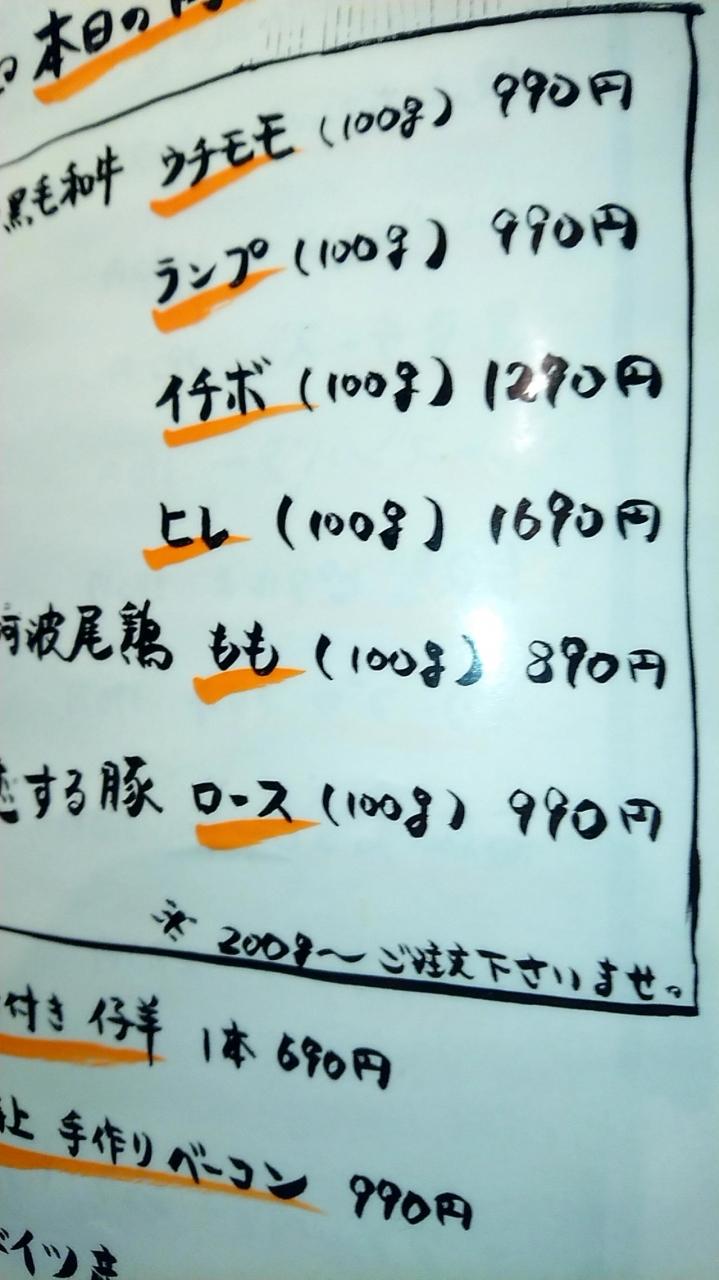 本日の
黒毛和牛 ウチモモ (100g) 990円
ランプ (100g) 990円
イチボ (100g) 1290円
ヒレ (100g) 1690円
阿波尾鶏 もも (100g) 890円
恋する豚 ロース (100g) 990円
※ 200g〜ご注文下さいませ。
付き 仔羊 1本 690円
上 手作りベーコン 990円
ドイツ産